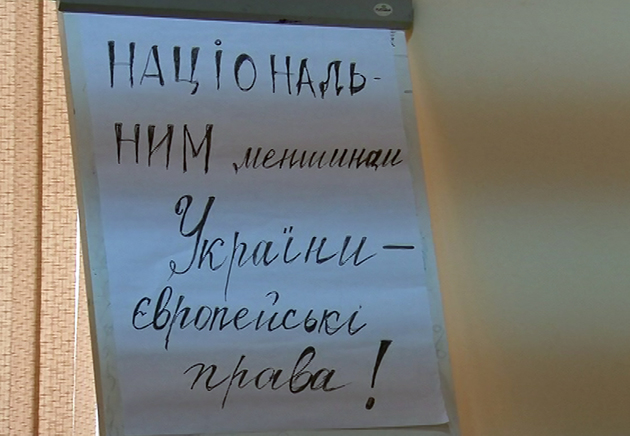 НАЦІОНАЛЬ-
НИМ меншинам
України –
європейські
права!